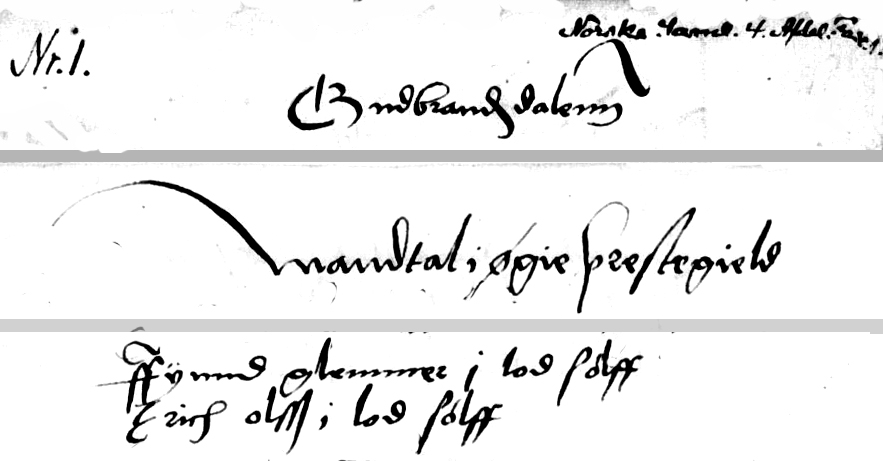 Norske Saml. 4. Afdel. Fasc. 1.
Nr. 1.
Gudbrandsdalenn
Mandtal i øgie prestegield
ffÿnnd glemmer j lod sølff
Erich olss i lod sølff